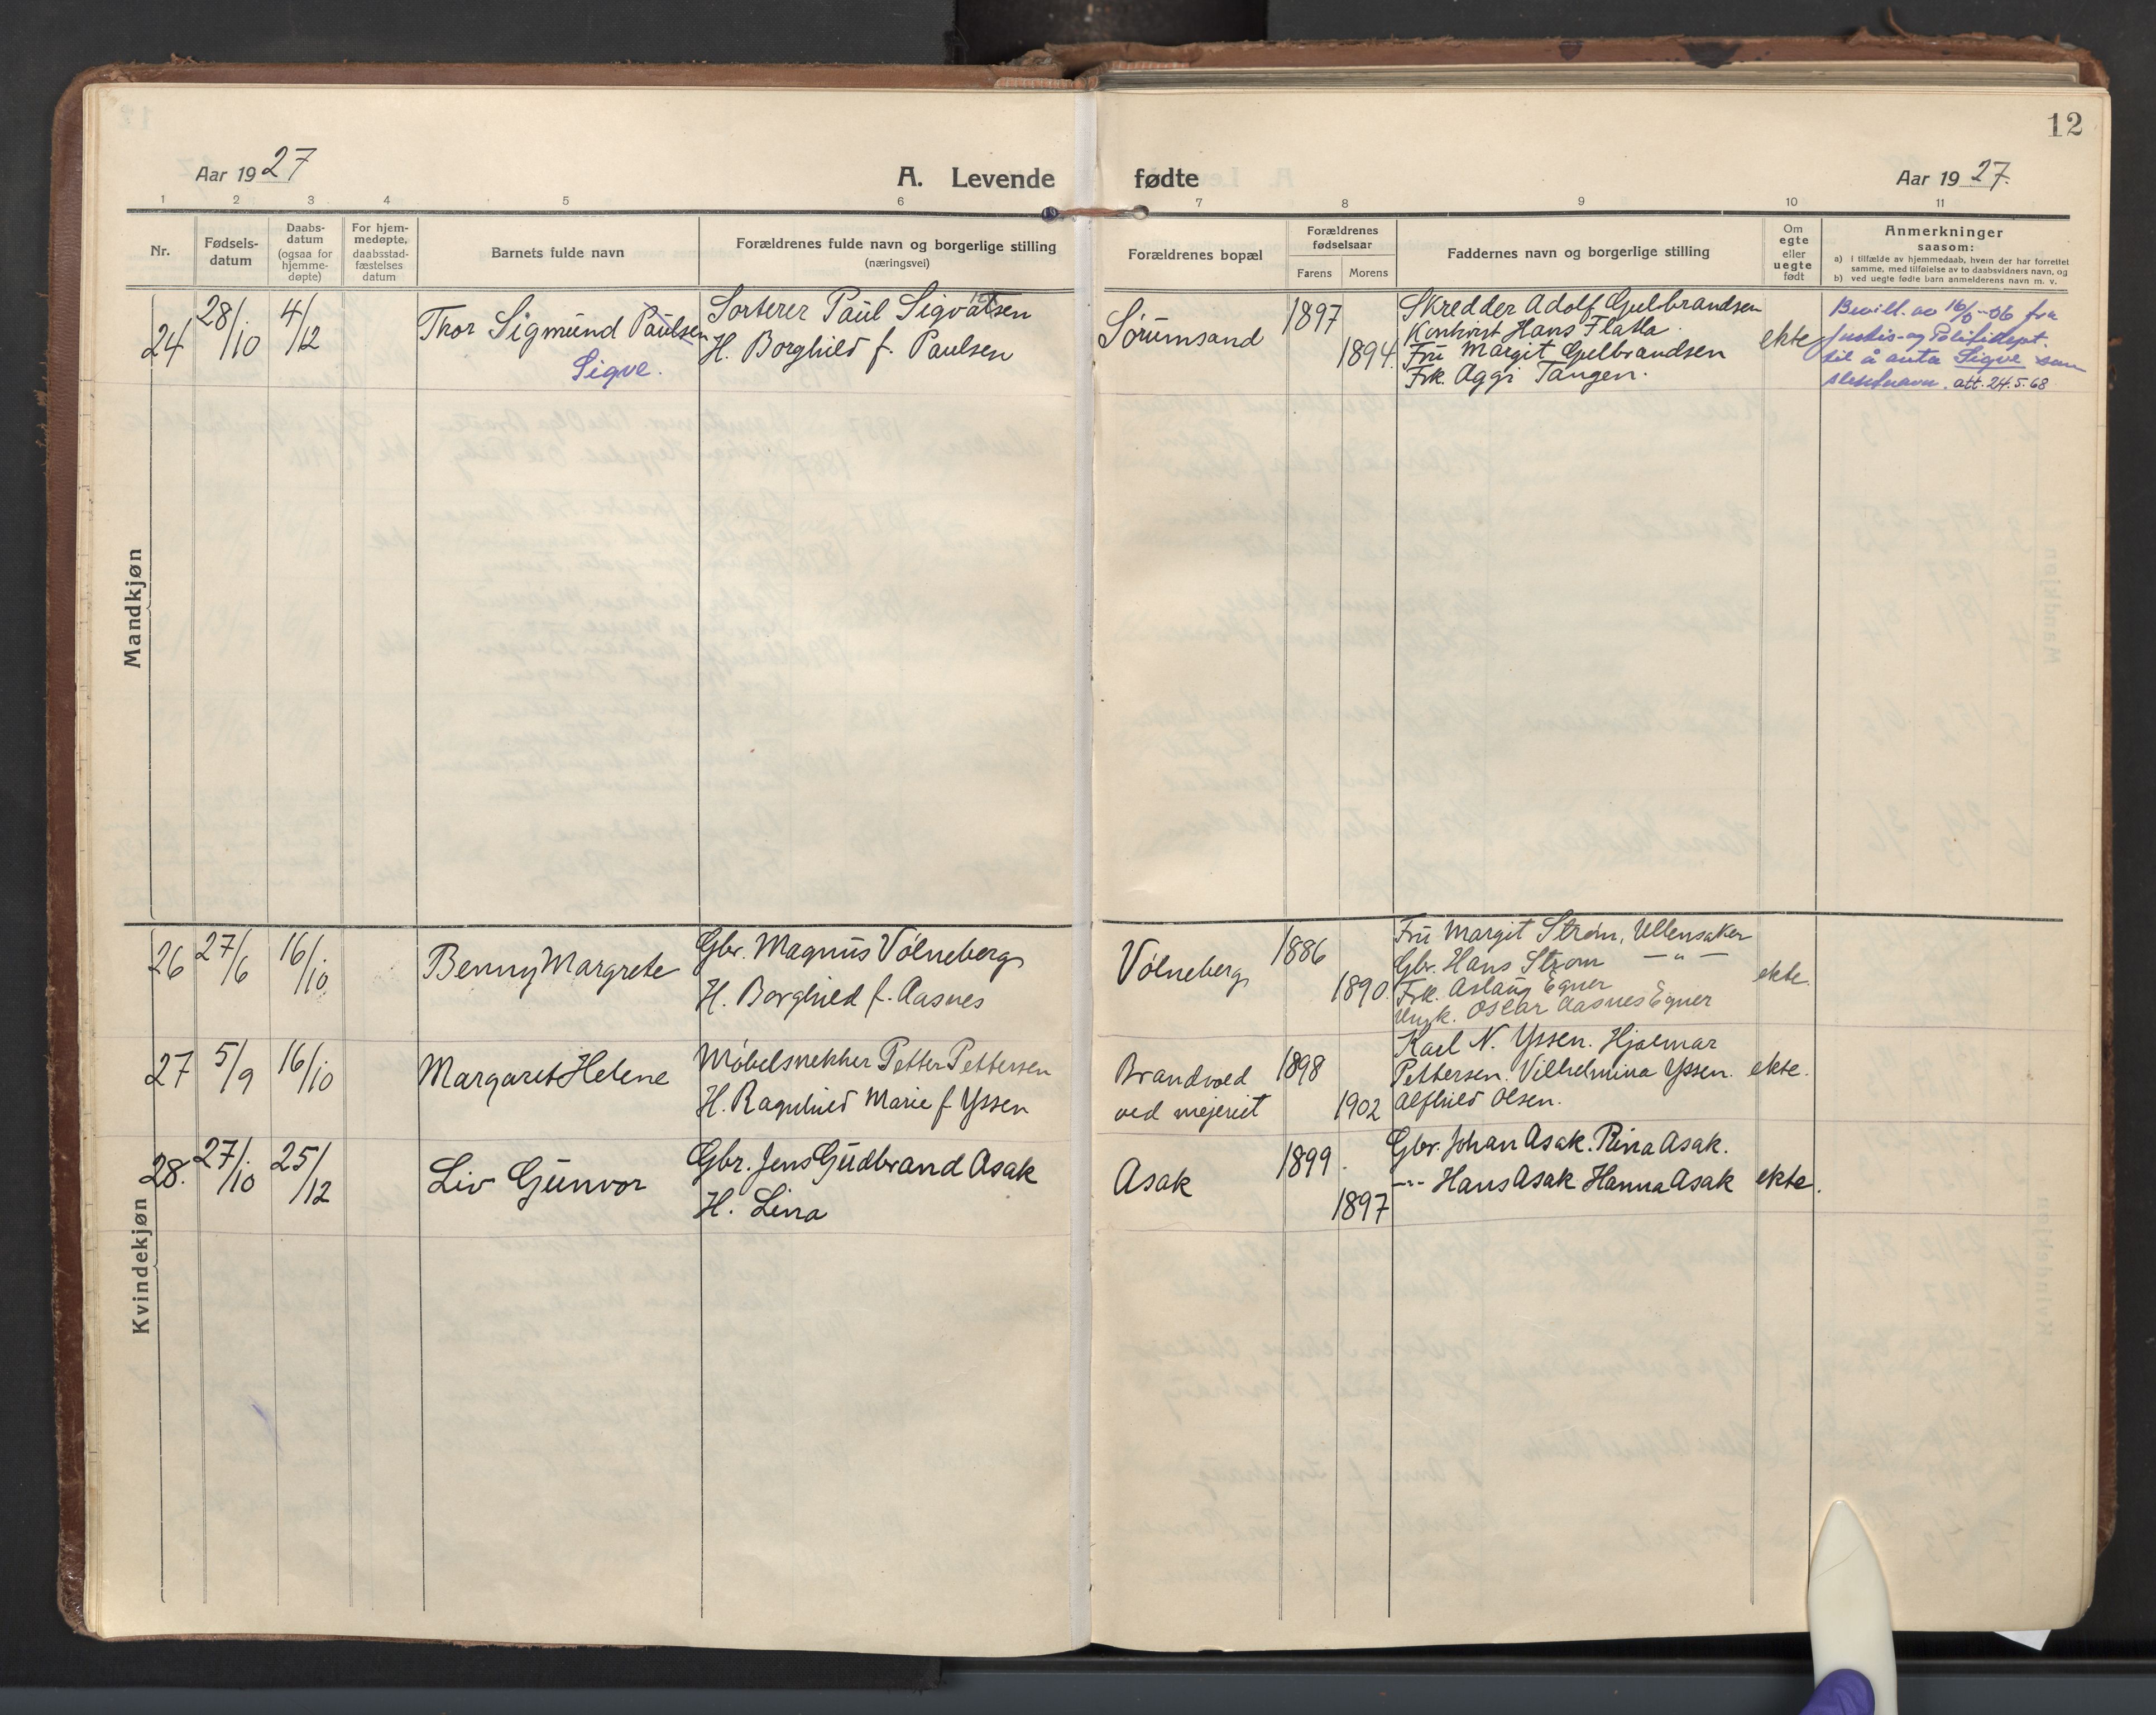 12
Aar 1927
A. Levende fødte
Aar 1927.
1 2 3 4 5 6 7 8 9 10 11
Nr.
Fødsels-
datum
Daabs-
datum
(ogsaa for
hjemme-
døpte)
For hjem-
medøpte,
daabsstad-
fæstelses
datum
Barnets fulde navn
Forældrenes fulde navn og borgerlige stilling
(næringsvei)
Forældrenes bopæl
Forældrenes
fødselsaar
Farens Morens
Faddernes navn og borgerlige stilling
Om
egte
eller
uegte
født
Anmerkninger
saasom:
a) i tilfælde av hjemmedaab, hvem der har forrettet
samme, med tilføielse av to daabsvidners navn, og
b) ved uegte fødte barn anmelderens navn m. v.
Mandkjøn
24
28/10
4/12
Thor Sigmund Paulsen
Sigve.
Sorterer Paul Sigvatsen
H. Borghild f. Paulsen
Sørumsand
1897
1894.
Skredder Adolf Gulbrandsen
Kontorist Hans Flatla.
Fru Margit Gulbrandsen
Frk. Aggi Tangen.
ekte
Bevill. av fra
Justis- og Politidept.
til å anta Sigve som
slektsnavn. att. 24.5.68
Kvindekjøn
26
27/6
16/10
Benny Margrete
Gbr. Magnus Vølneberg
H. Borghild f. Aasnes
Vølneberg
1886
1890.
Fru Margit Strøm, Ullensaker
Gbr. Hans Strøm — " —
Frk. Aslaug Egner
Ungk. Oscar Aasnes Egner
ekte.
27
5/9
16/10
Margaret Helene
Møbelsnekker Petter Pettersen
H. Ragnhild Marie f. Yssen
Brandvold
ved mejeriet
1898
1902
Karl N. Yssen. Hjalmar
Pettersen. Vilhelmina Yssen.
Alfhild Olsen.
ekte.
28.
27/10
25/12
Liv Gunvor
Gbr. Jens Gudbrand Asak
H. Lina
Asak
1899.
1897
Gbr. Johan Asak. Rina Asak.
—"— Hans Asak Hanna Asak
ekte.